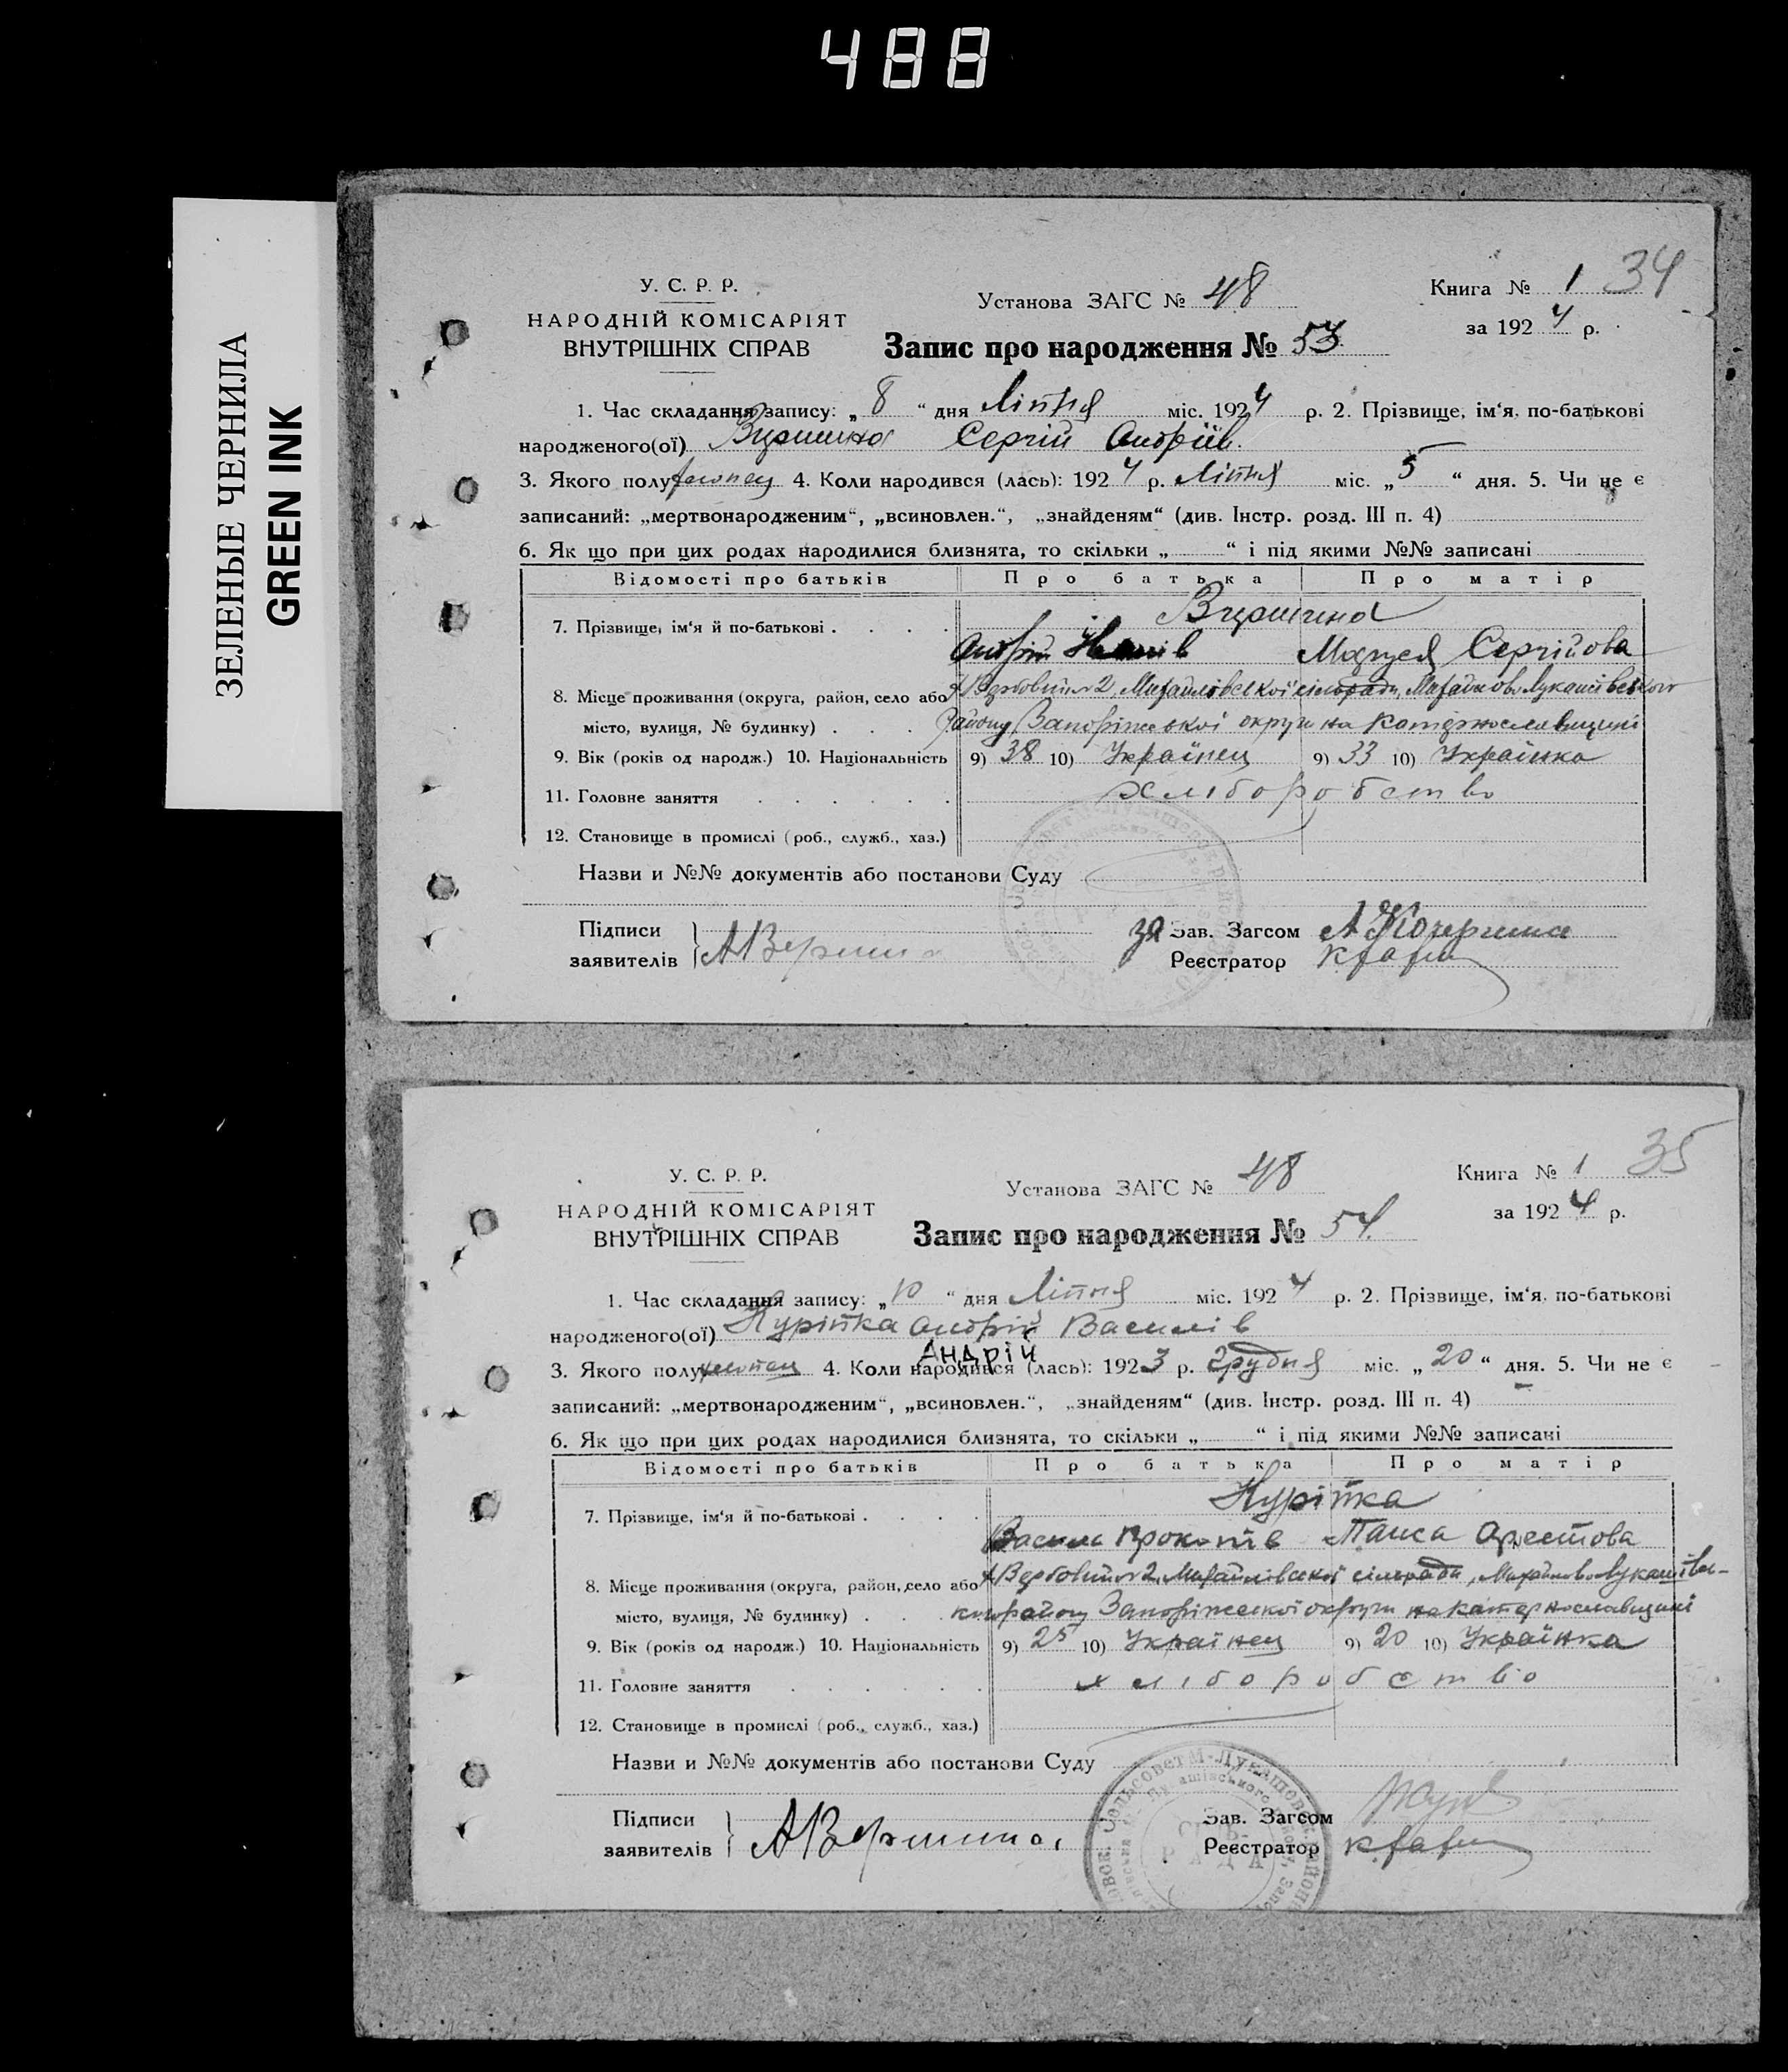 488
ЗЕЛЕНЫЕ ЧЕРНИЛА
GREEN INK
У. С. Р. Р.
НАРОДНІЙ КОМІСАРІЯТ
ВНУТРІШНІХ СПРАВ
Установа ЗАГС № 48
Книга № 1 34
за 1924 р.
Запис про народження № 53
1. Час складання запису: „ 8 “ дня Літня міс. 1924 р. 2. Прізвище, ім‘я, по-батькові
народженого(ої) Сергій Андріїв.
3. Якого полу хлопец 4. Коли народився (лась): 1924 р. Літня міс. „ 5 “ дня. 5. Чи не є
записаний: „мертвонародженим“, „всиновлен.“, „знайденям“ (див. Інстр. розд. III п. 4)
6. Як що при цих родах народилися близнята, то скільки „ “ і під якими №№ записані
Відомості про батьків Про батька Про матір
7. Прізвище, ім‘я й по-батькові
Андрій Сергійова
8. Місце проживання (округа, район, село або х. Вербовий № 2, Михайлівської сільради, Михайлово Лукашівського
місто, вулиця, № будинку) району Запоріжської округи на Катернославщині
9. Вік (років од народж.) 10. Національність 9) 38 10) Українец 9) 33 10) Українка
11. Головне заняття хліборобство
12. Становище в промислі (роб., служб., хаз.)
Назви и №№ документів або постанови Суду
Підписи заявителів А Вершина
за Зав. Загсом А Кочергина
Реєстратор
У. С. Р. Р.
НАРОДНІЙ КОМІСАРІЯТ
ВНУТРІШНІХ СПРАВ
Установа ЗАГС № 48
Книга № 1 35
за 1924 р.
Запис про народження № 54.
1. Час складання запису: „ 10 “ дня Літня міс. 1924 р. 2. Прізвище, ім‘я, по-батькові
народженого(ої) Куріпка Андрій Василів
Андрій
3. Якого полу хлопец 4. Коли народився (лась): 1923 р. Грудня міс. „ 20 “ дня. 5. Чи не є
записаний: „мертвонародженим“, „всиновлен.“, „знайденям“ (див. Інстр. розд. III п. 4)
6. Як що при цих родах народилися близнята, то скільки „ “ і під якими №№ записані
Відомості про батьків Про батька Про матір
Куріпка
7. Прізвище, ім‘я й по-батькові
Василь Прокопів Орестова
8. Місце проживання (округа, район, село або х. Вербовий № 2, Михайлівської сільради, Михайлово Лукашівсь-
місто, вулиця, № будинку) кого району Запоріжської округи на Катернославщині
9. Вік (років од народж.) 10. Національність 9) 25 10) Українец 9) 20 10) Українка
11. Головне заняття хліборобство
12. Становище в промислі (роб., служб., хаз.)
Назви и №№ документів або постанови Суду
Підписи заявителів А Вершина
Зав. Загсом
Реєстратор